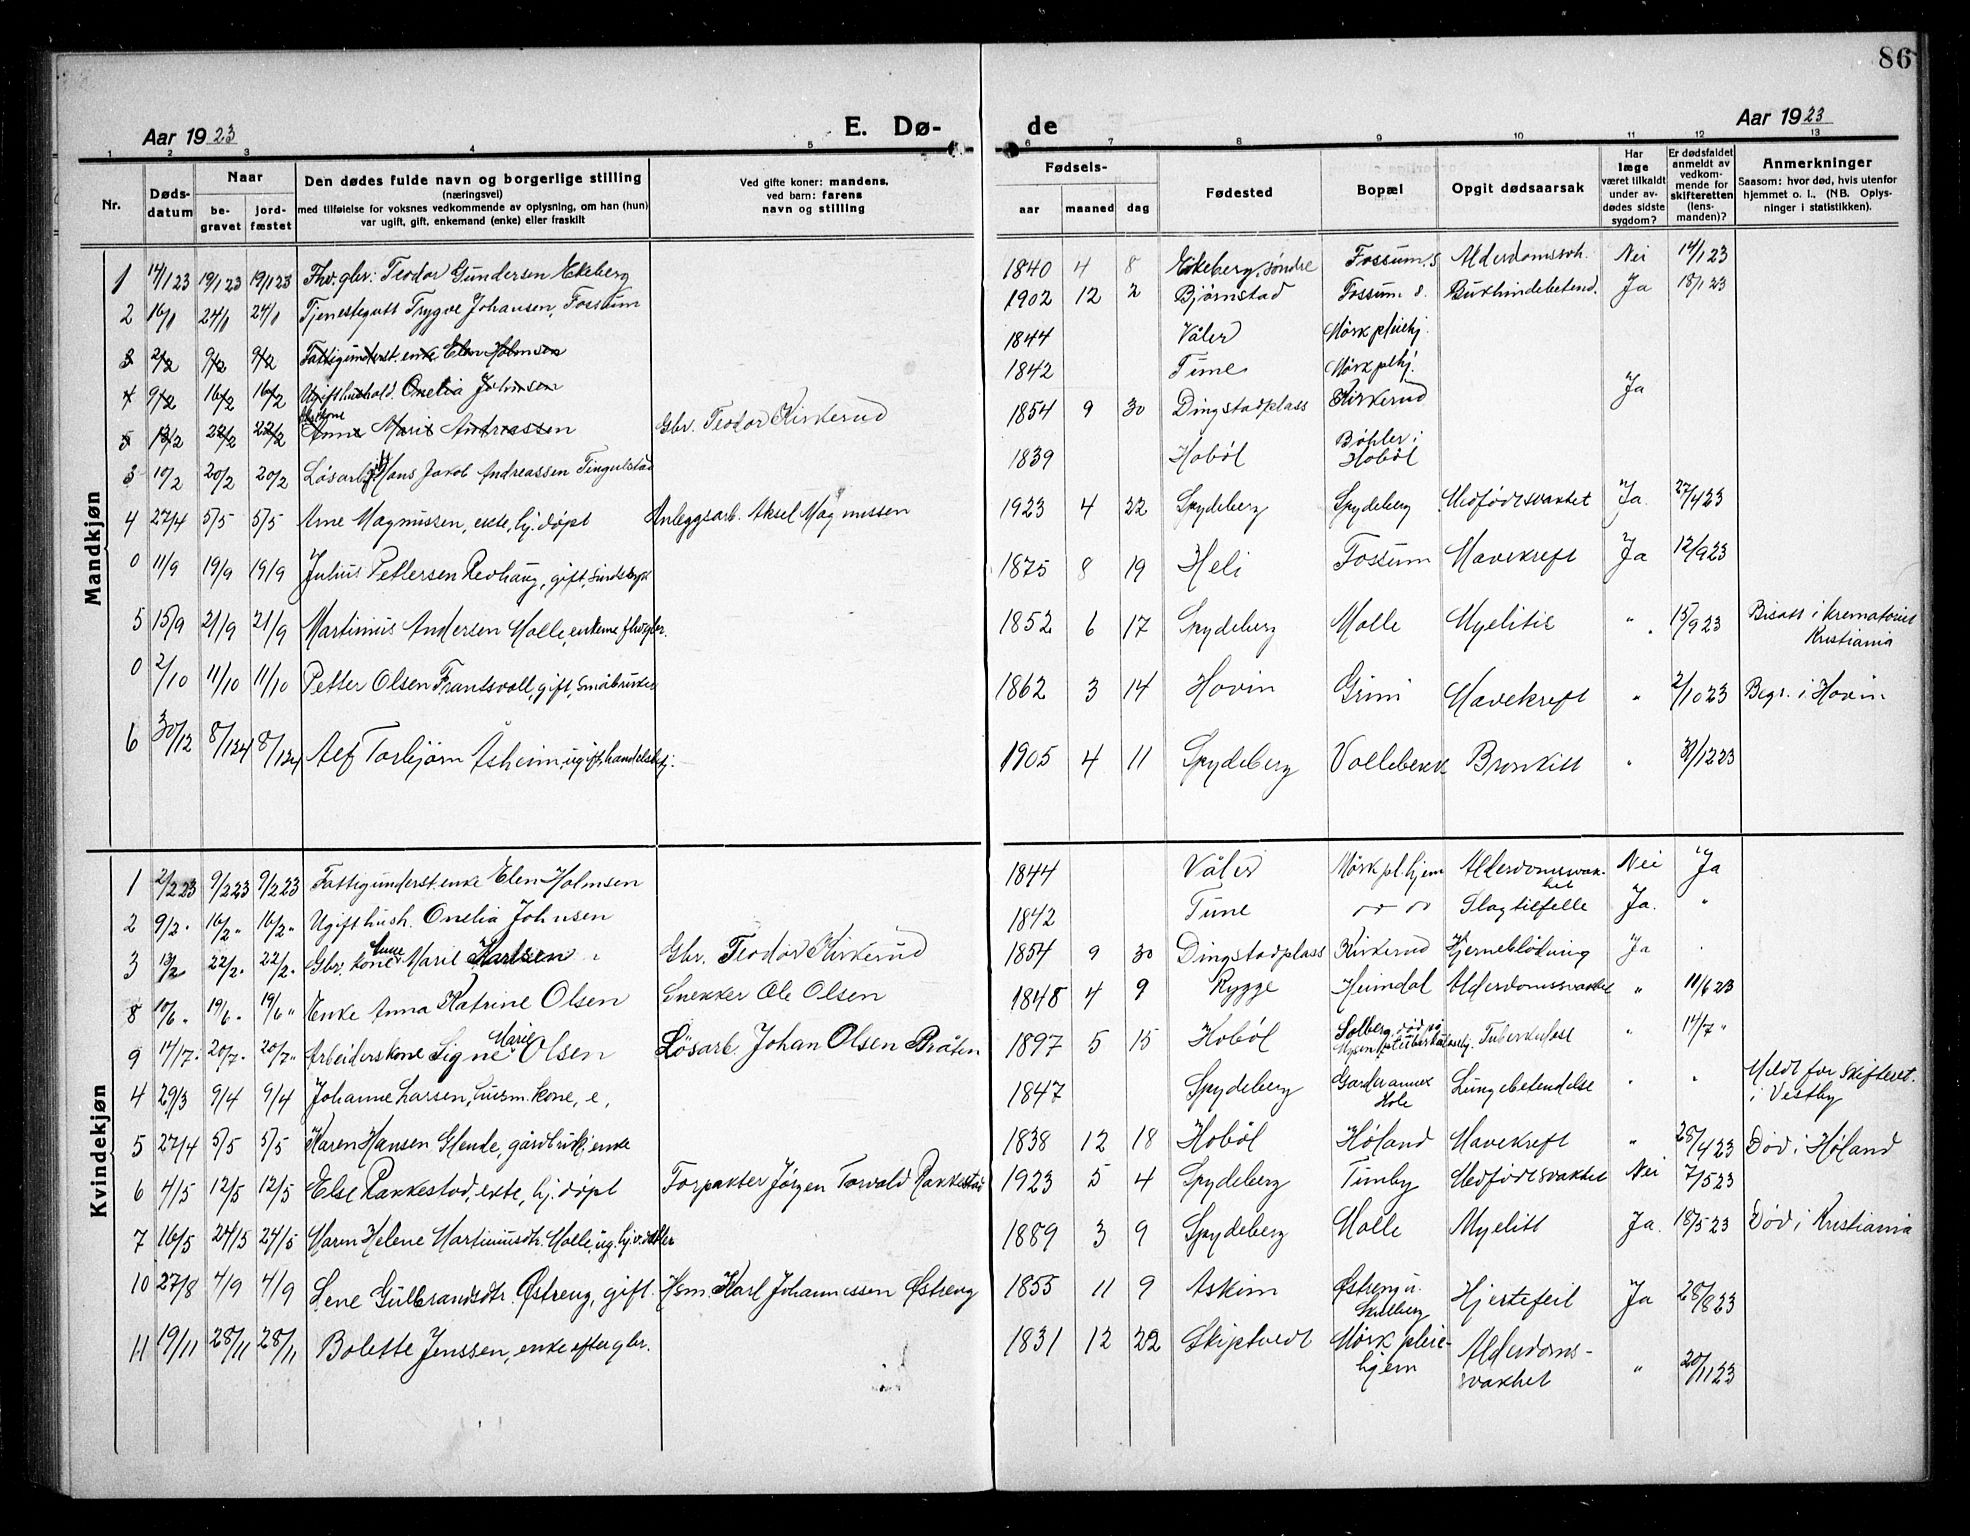 86
Aar 1923 E. Dø-de Aar 1923
1 2 3 4 5 6 7 8 9 10 11 12 13
Nr.
Døds-
datum
Naar
be-
gravet
jord-
fæstet
Den dødes fulde navn og borgerlige stilling
(næringsvei)
med tilføielse for voksnes vedkommende av oplysning, om han (hun)
var ugift, gift, enkemand (enke) eller fraskilt
Ved gifte koner: mandens,
ved barn: farens
navn og stilling
Fødsels-
aar maaned dag
Fødested
Bopæl
Opgit dødsaarsak
Har
læge
været tilkaldt
under av-
dødes sidste
sygdom?
Er dødsfaldet
anmeldt av
vedkom-
mende for
skifteretten
(lens-
manden)?
Anmerkninger
Saasom: hvor død, hvis utenfor
hjemmet o. l., (NB. Oplys-
ninger i statistikken).
Mandkjøn
1 14/1 23 19/1 23 19/1 23 Fhv. gbr. Teodor Gundersen Ekeberg 1840 4 8 Ekeberg, søndre Fossum s Alderdomssvh. Nei 14/1 23
2 16/1 24/1 24/1 Tjenestegutt Trygve Johansen, Fossum 1902 12 2 Bjørnstad Fossum s. Bukhindebetend. Ja 18/1 23
3 2/2 9/2 9/2 Fattigunderst. enke Elen Holmsen 1844 Våler Mørk pleiehj.
4 9/2 16/2 16/2 Ugift hushold. Onelia Johnsen 1842 Tune Mørk plhj.
5 13/2 22/2 22/2 Anne Marie Andreassen Gbr. Teodor Kirkerud 1854 9 30 Dingstadplass Kirkerud Ja
3 10/2 20/2 20/2 Løsarb. Hans Jakob Andreassen Tingulstad 1839 Hobøl Bøhler i Hobøl
4 27/4 5/5 5/5 Arne Magnussen, ekte, hj. døpt Anleggsarb. Aksel Magnussen 1923 4 22 Spydeberg Spydeberg Medfødt svakhet Ja 27/4 23
0 11/9 19/9 19/9 Julius Pettersen Revhaug, gift, 1875 8 19 Heli Fossum Mavekreft Ja 12/9 23
5 15/9 21/9 21/9 Martinius Andersen Molle, enkem. fhv. gbr. 1852 6 17 Spydeberg Molle Myelitis " 15/9 23 Bisatt i krematoriet Kristiania
0 2/10 11/10 11/10 Petter Olsen Frantsvoll, gift, Småbruker 1862 3 14 Hovin Grini Mavekreft " 2/10 23 Begr. i Hovin
6 30/12 8/1 24 8/1 24 Alf Torbjørn Åsheim, ugift, handelsbetj. 1905 4 11 Spydeberg Vollebekk Bronkitt " 31/12 23
Kvindekjøn
1 2/2 23 9/2 23 9/2 23 Fattigunderst. enke Elen Holmsen 1844 Våler Mørk pl. hjem Alderdomssvakhet Nei Ja
2 9/2 " 16/2 " 16/2 " Ugift hush. Onelia Johnsen 1842 Tune " " Slagtilfelle Ja. "
3 13/2 22/2 " 22/2 " Gbr. kone Anne Marie Karlsen Gbr. Teodor Kirkerud 1854 9 30 Dingstadplass Kirkerud Hjerneblødning Ja "
8 10/6 " 19/6 " 19/6 " Enke Anna Katrine Olsen Snekker Ole Olsen 1848 4 9 Rygge Heimdal Alderdomssvakhet " 11/6 23
9 14/7 " 20/7 " 20/7 " Arbeiderskone Signe Marie Olsen Løsarb. Johan Olsen Bråten 1897 5 15 Hobøl Solberg, død på Mysen tuberkulosehj. Tuberkulose " 14/7 "
4 29/3 9/4 9/4 Johanne Larsen, kone, e. 1847 Spydeberg Garder annex Hole Lungebetendelse " " Meldt for skifteret. i Vestby
5 27/4 5/5 5/5 Karen Hansen Glende, gårdbruk. enke 1838 12 18 Hobøl Høland Mavekreft " 28/4 23 Død i Høland
6 4/5 12/5 12/5 Else Rakkestad, ekte, hj. døpt Forpakter Jörgen Torvald Rakkestad 1923 5 4 Spydeberg Timby Medfødt svakhet Nei 7/5 23
7 16/5 24/5 24/5 Maren Helene Martiniusdtr. Molle, ug. 1889 3 9 Spydeberg Molle Myelitt Ja. 18/5 23 Død i Kristiania
10 27/8 4/9 4/9 Lene Gulbrandsdtr. Østreng, gift. Hsm. Karl Johannessen Østreng 1855 11 9 Askim Østreng u. Skulberg Hjertefeil Ja 28/8 23
11 19/11 28/11 28/11 Bolette Jenssen, enke efter gbr. 1831 12 22 Skiptvedt Mørk pleie-hjem Alderdoms-svakhet " 20/11 23